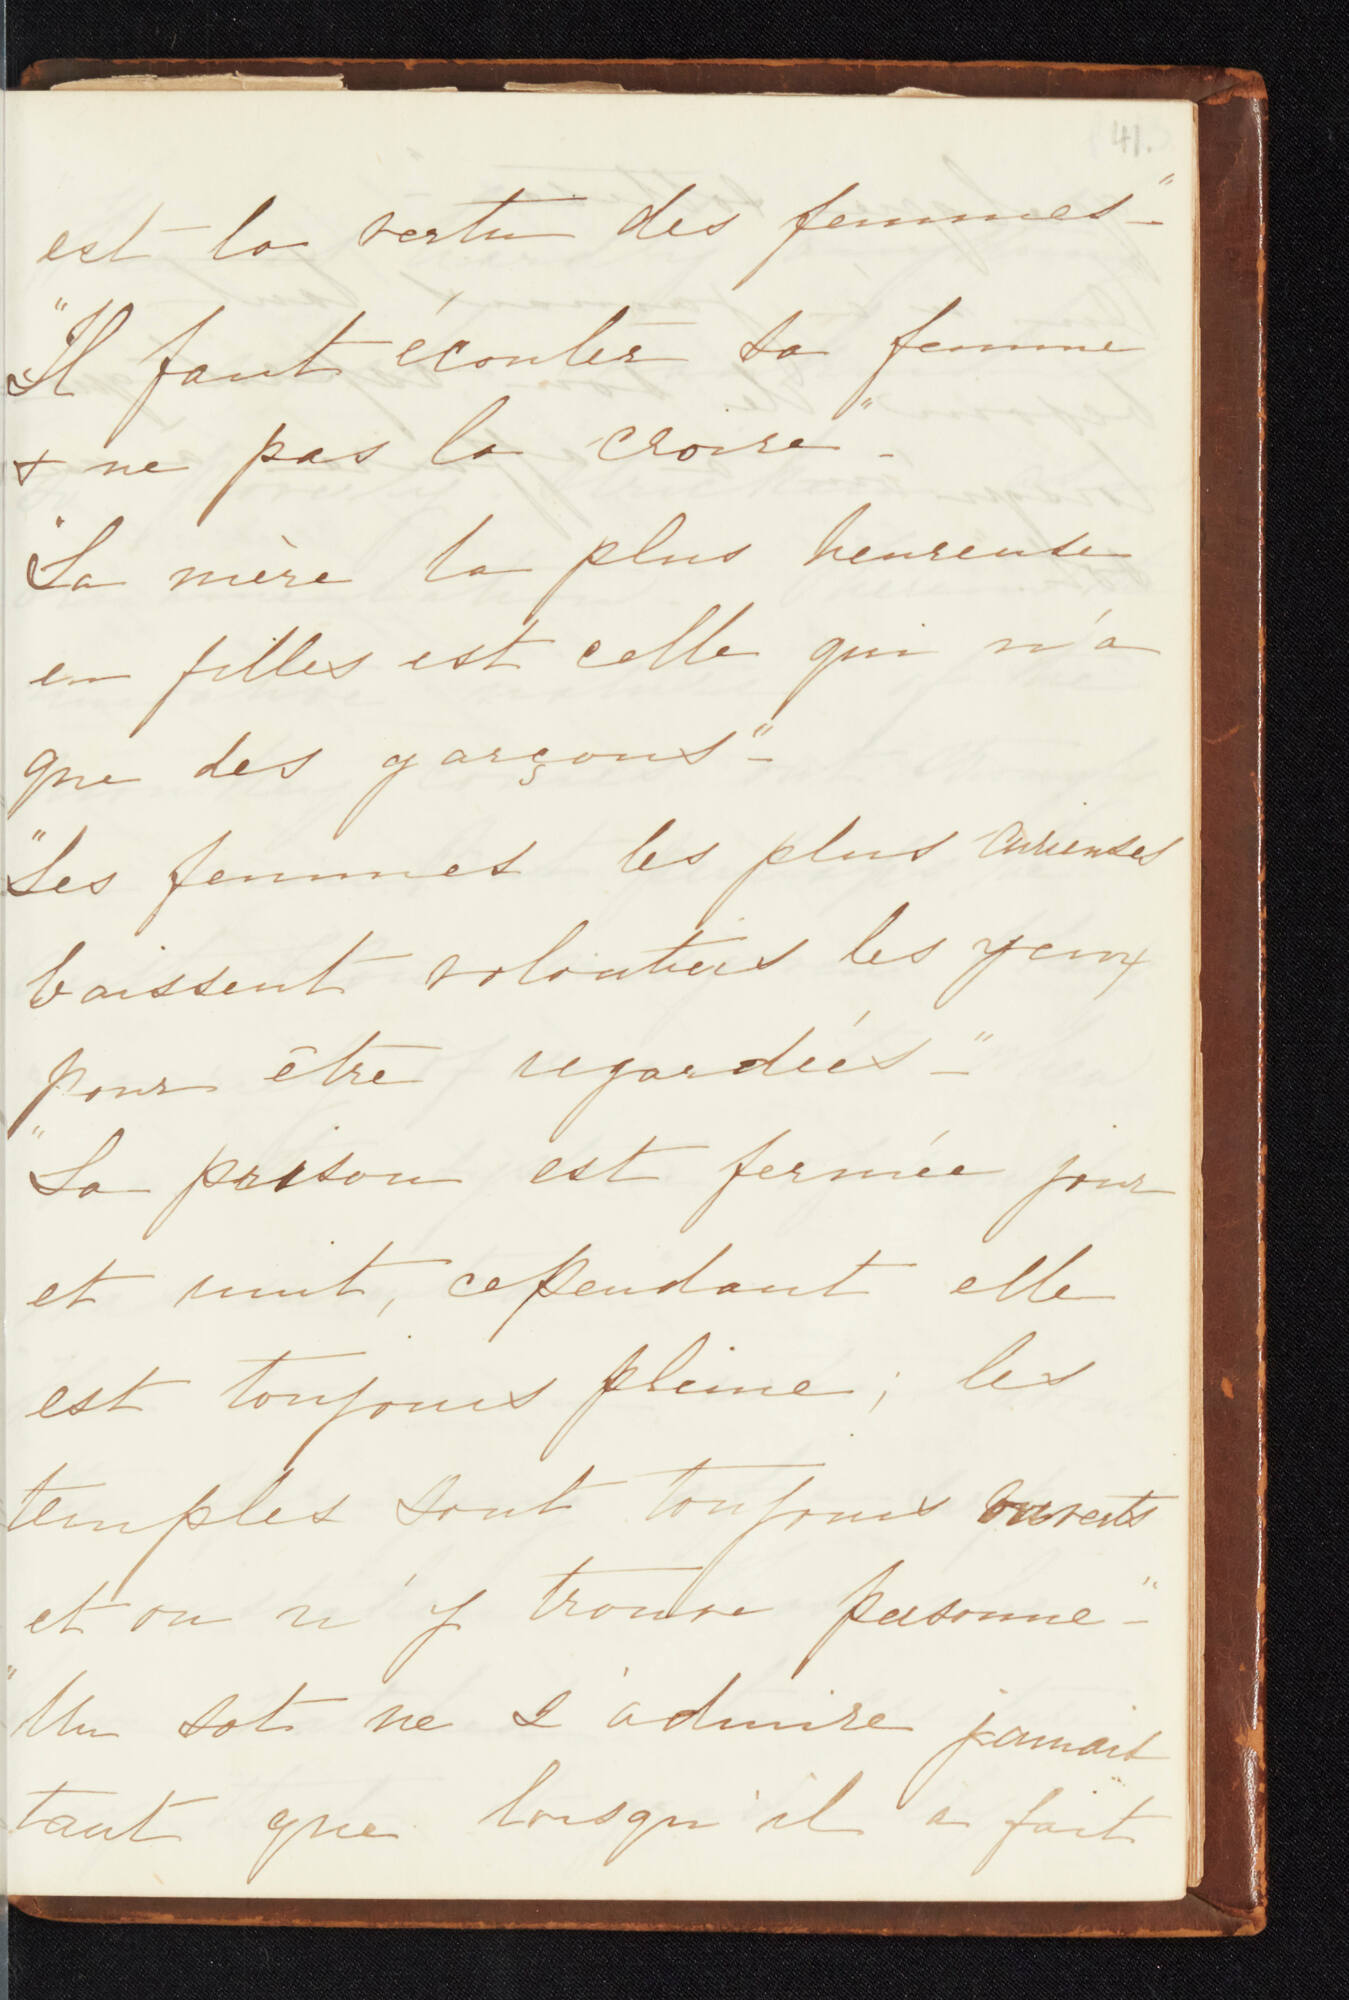 41.
est la vertu des femmes"-
"Il faut écouter sa femme
& ne pas la croire"-
"La mère la plus heureuse
en filles est celle qui n'a
que des garçons"-
"Les femmes les plus curieuses
baissent volontiers les yeux
pour être regardées-"
"La prison est fermée jour
et nuit, cependant elle
est toujours pleine; les
temples sont toujours ouverts
et on n'y trouve personne-"
"Un sot ne s'admire jamais
tant que lorsqu'il a fait